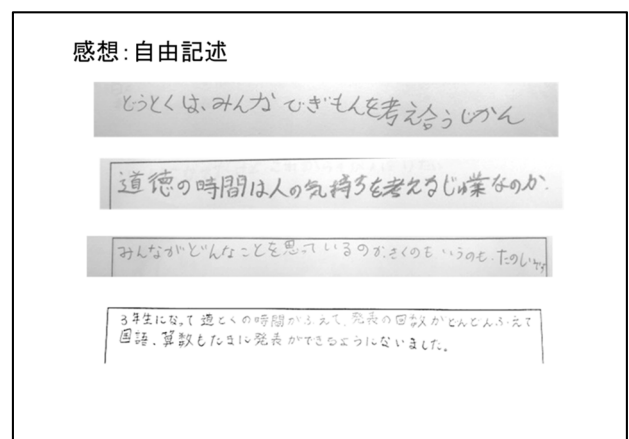 感想：自由記述
どうとくは、みんなでぎもんを考え合うじかん
道徳の時間は人の気持ちを考えるじゅ業なのか.
みんながどんなことを思っているのか、きくのも いうのも、たのしいです
3年生になって道とくの時間がふえて、発表の回数がどんどんふえて
国語、算数もたまに発表ができるようになりました。